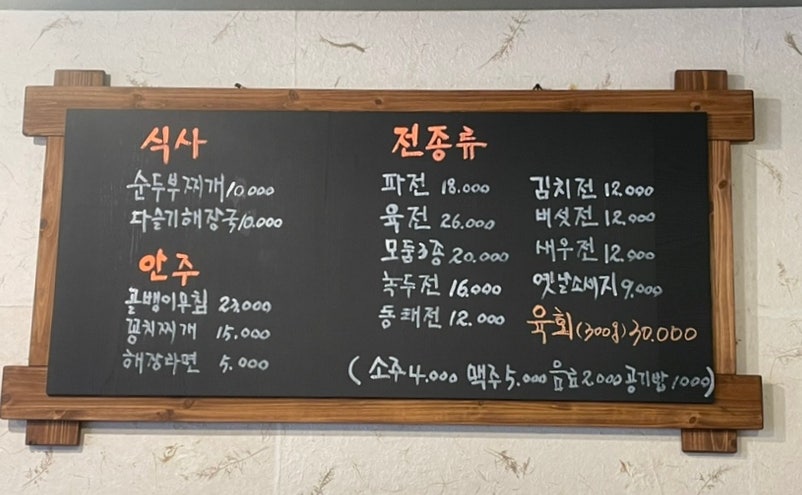 식사
순두부찌개 10.000
다슬기해장국 10.000
안주
골뱅이무침 23,000
꽁치찌개 15.000
해장라면 5.000
전종류
파전 18.000
육전 26.000
모둠3종 20.000
녹두전 16.000
동태전 12.000
김치전 12.000
버섯전 12.000
새우전 12.000
옛날소세지 9.000
육회(300g) 30.000
(소주 4.000 맥주 5.000 음료 2.000 공기밥 1000)